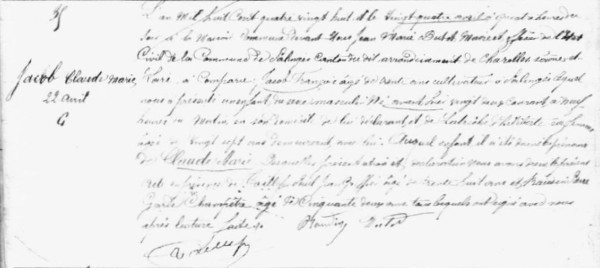 35
Jacob Claude Marie
22 Avril
6
L'an mil huit cent quatre vingt huit et le vingt quatre avril à
du matin devant Nous Jean Marie Dutot Maire et officier de l'Etat
Civil de la Commune de Palinges Canton de dit arrondissement de Charolles Saône et
Loire, a Comparu Jacob François âgé de trente ans cultivateur à Palinges lequel
nous a présenté un enfant du sexe masculin Né avant hier vingt deux courant à neuf
heures du Matin en son domicile de lui déclarant et de
âgée de vingt sept ans demeurant avec lui. Auquel enfant il a été donné les prénoms
de Claude Marie. Desquelles présentation et déclaration nous avons dressé le présent
acte en présence de âgé de trente huit ans et
Garde Champêtre âgé de Cinquante deux ans tous lesquels ont signé avec nous
après lecture faite. Dutot